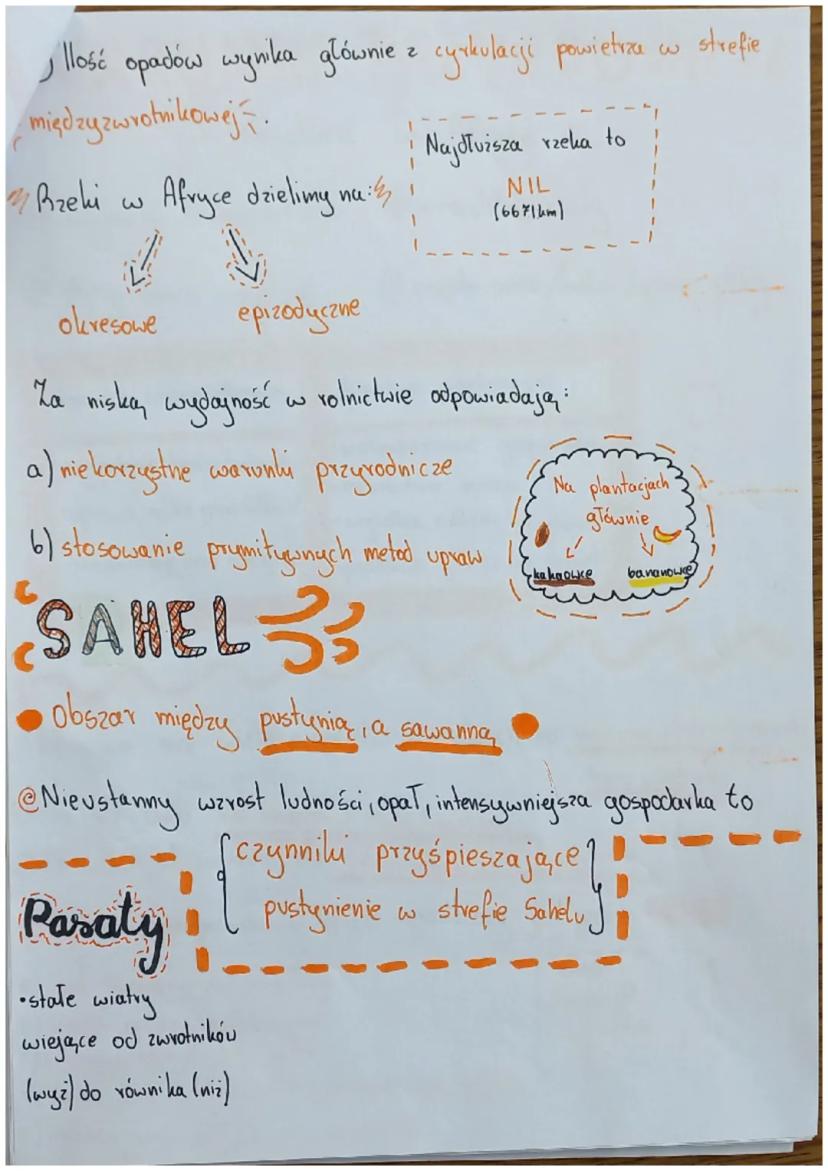 Ilość opadów wynika głównie z cyrkulacji powietrza w strefie
międzyzwrotnikowej.
Najdłuższa rzeka to
NIL
(6671km)
Rzeki w Afryce dzielimy na:
okresowe
epizodyczne
Za niską wydajność w rolnictwie odpowiadają:
a) niekorzystne warunki przyrodnicze
b) stosowanie prymitywnych metod upraw
Na plantacjach
głównie
kakaowce bananowce
SAHEL
Obszar między pustynią, a sawanną
Nieustanny wzrost ludności, opał, intensywniejsza gospodarka to
czynniki przyśpieszające
pustynienie w strefie Sahelu
Pasaty
• stałe wiatry
wiejące od zwrotników
(wyż) do równika (niż)